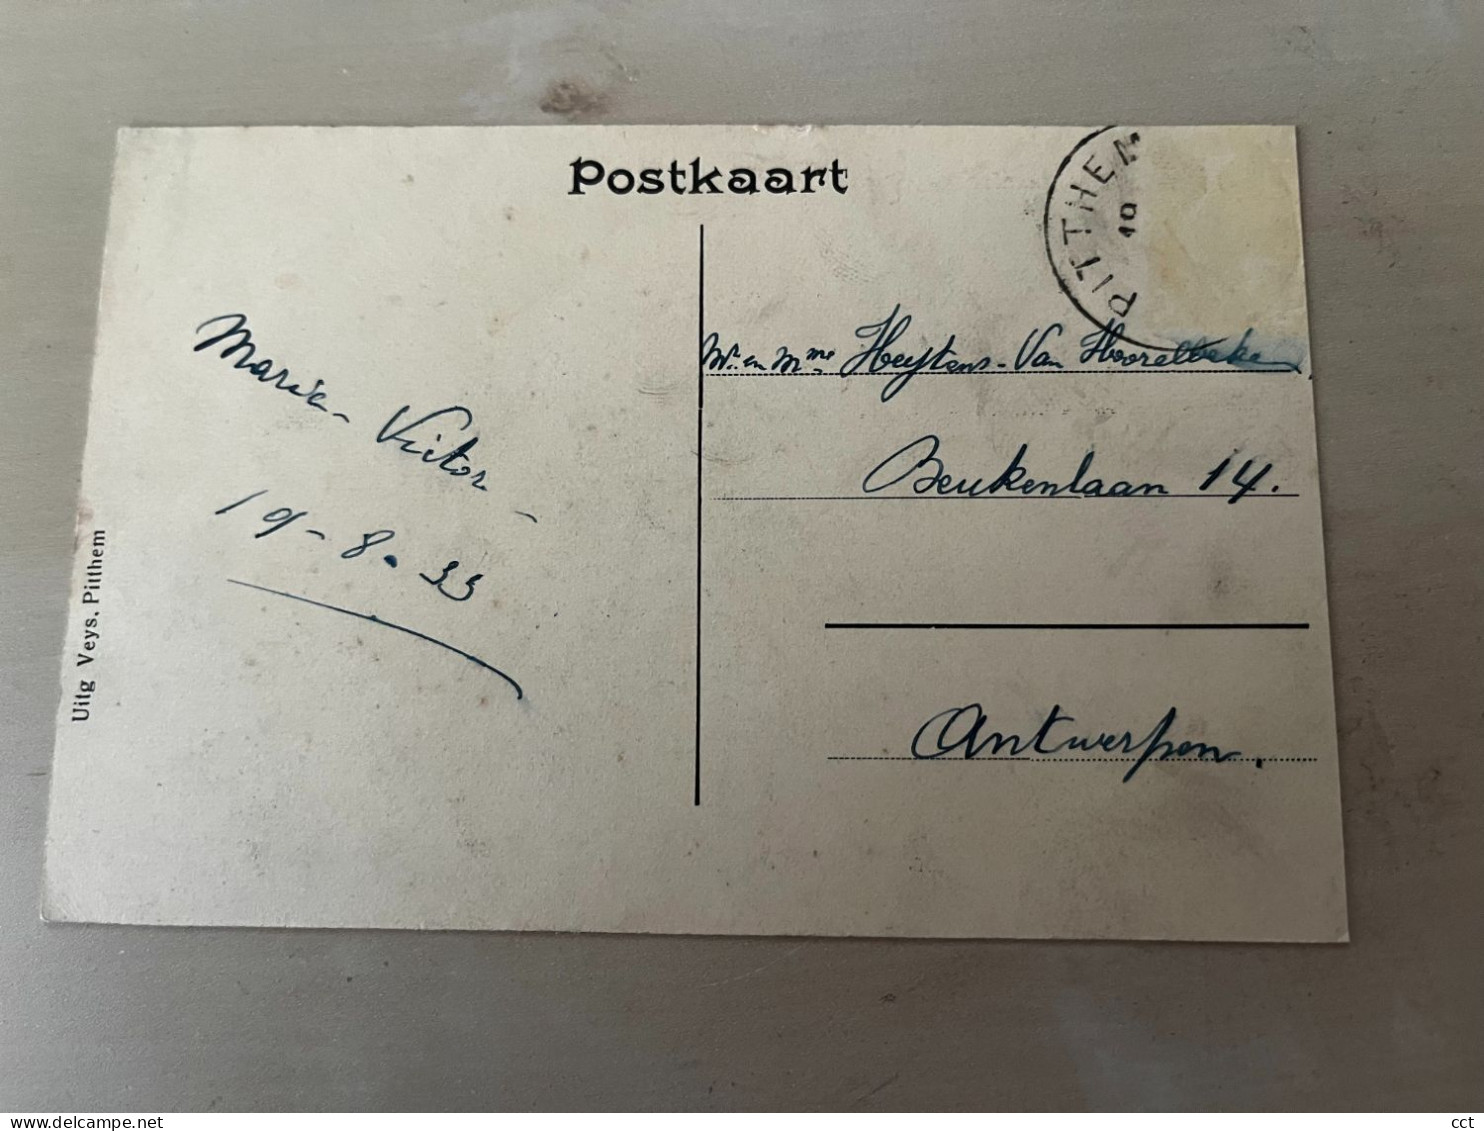 Postkaart
PITTHEM
19
Marie - Victor -
19 - 8 - 33
Uitg Veys, Pitthem
Mr. en Mme Heytens - Van Hoorelbeke
Beukenlaan 14.
Antwerpen.
cct